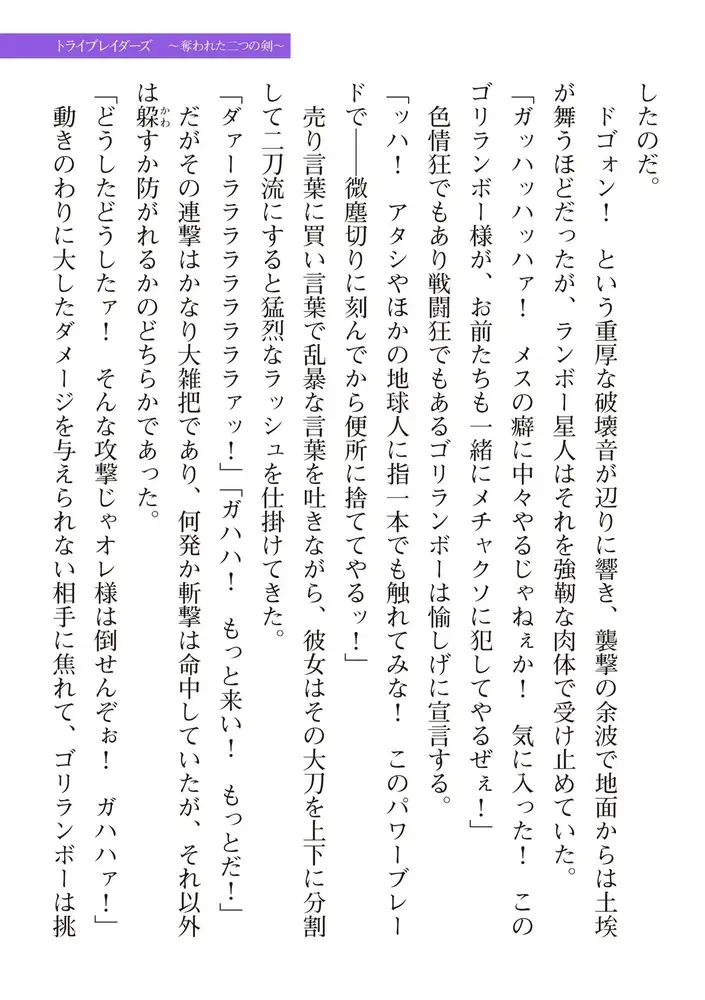 トライブレイダーズ　～奪われた二つの剣～
したのだ。
　ドゴォン！　という重厚な破壊音が辺りに響き、襲撃の余波で地面からは土埃
が舞うほどだったが、ランボー星人はそれを強靭な肉体で受け止めていた。
「ガッハッハッハァ！　メスの癖に中々やるじゃねぇか！　気に入った！　この
ゴリランボー様が、お前たちも一緒にメチャクソに犯してやるぜぇ！」
　色情狂でもあり戦闘狂でもあるゴリランボーは愉しげに宣言する。
「ッハ！　アタシやほかの地球人に指一本でも触れてみな！　このパワーブレー
ドで――微塵切りに刻んでから便所に捨ててやるッ！」
　売り言葉に買い言葉で乱暴な言葉を吐きながら、彼女はその大刀を上下に分割
して二刀流にすると猛烈なラッシュを仕掛けてきた。
「ダァーラララララララララァッ！」「ガハハ！　もっと来い！　もっとだ！」
　だがその連撃はかなり大雑把であり、何発か斬撃は命中していたが、それ以外
は躱すか防がれるかのどちらかであった。
かわ
「どうしたどうしたァ！　そんな攻撃じゃオレ様は倒せんぞぉ！　ガハハァ！」
　動きのわりに大したダメージを与えられない相手に焦れて、ゴリランボーは挑